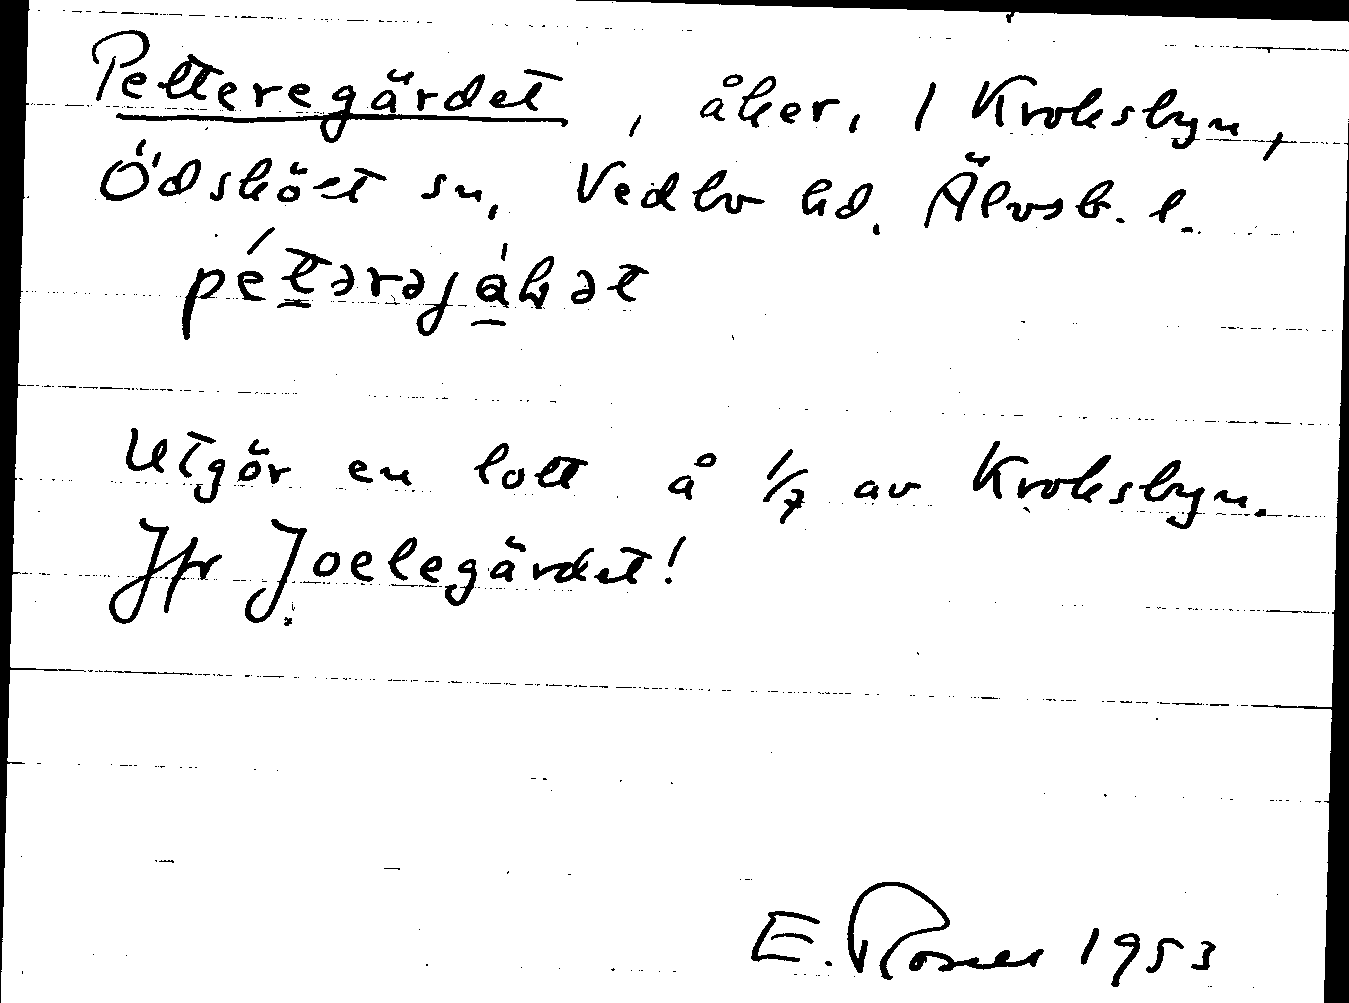 Petteregärdet, åker, 1 Kroksbyn,
Ödskölt sn, Vedbo hd. Älvsb. l.
Utgör en lott å 1/7 av Kroksbyn.
Jfr Joelegärdet!
E. 1953